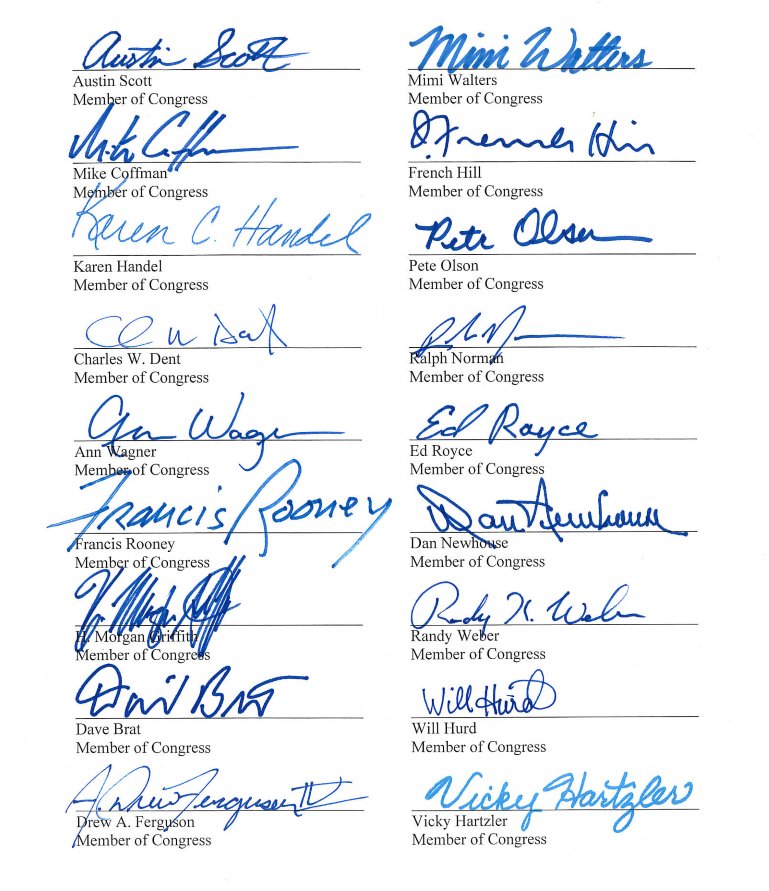 Austin Scott
Austin Scott
Member of Congress
Mimi Walters
Mimi Walters
Member of Congress
Mike Coffman
Mike Coffman
Member of Congress
J. French Hill
French Hill
Member of Congress
Karen C. Handel
Karen Handel
Member of Congress
Pete Olson
Pete Olson
Member of Congress
Charles W. Dent
Member of Congress
Ralph Norman
Member of Congress
Ann Wagner
Ann Wagner
Member of Congress
Ed Royce
Ed Royce
Member of Congress
Francis Rooney
Francis Rooney
Member of Congress
Dan Newhouse
Dan Newhouse
Member of Congress
H. Morgan Griffith
Member of Congress
Randy K. Weber
Randy Weber
Member of Congress
David Brat
Dave Brat
Member of Congress
Will Hurd
Will Hurd
Member of Congress
A. Drew Ferguson IV
Drew A. Ferguson
Member of Congress
Vicky Hartzler
Vicky Hartzler
Member of Congress